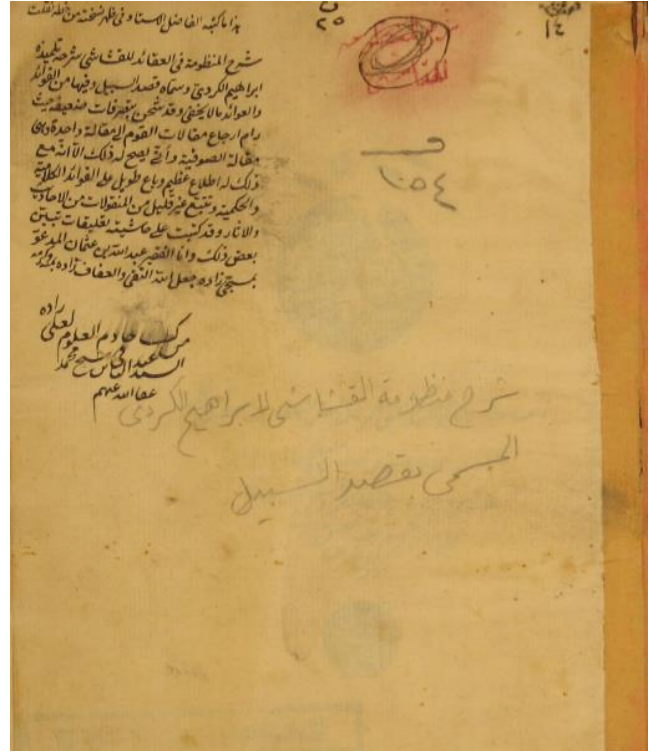 هذا ما كتبه الفاضل الاستاد في ظهر نسخته من خطه نقلت
شرح المنظومة في العقائد للقشاشي شرحه تلميذه
ابراهيم الكردي وسماه قصد السبيل وفيها من الفوائد
والعوائد ما لا يخفى وقد شحن بتصرفات ضعيفة حيث
رام ارجاع مقالات القوم الى مقالة واحدة وهي
مقالة الصوفية وأنى يصح له ذلك الا أنه مع
ذلك له اطلاع عظيم وباع طويل على الفوائد الكلامية
والحكمية وتتبع غير قليل من المنقولات من الاحاديث
والاثار وقد كتبت على حاشيته تعليقات تبين
بعض ذلك وانا الفقير عبد الله بن عثمان المدعو
بمستجي زاده جعل الله التقى والعفاف زاده
من كتب خادم العلوم
السيد عبد الله شيخ محمد
عفا الله عنهم
٢٥
١٤
١٠٥٤
شرح منظومة القشاشي لابراهيم الكردي
المسمى بقصد السبيل